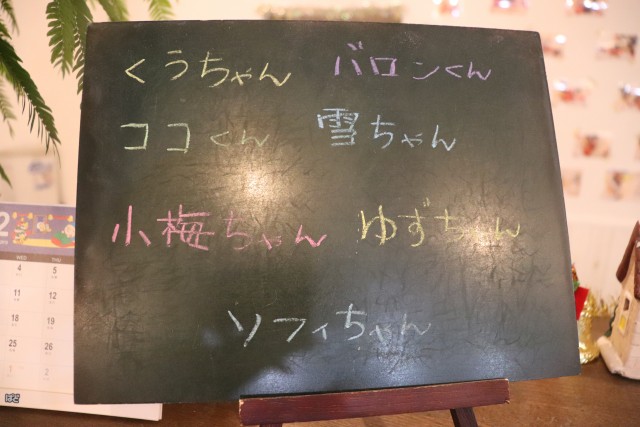 くうちゃん バロンくん
ココくん 雪ちゃん
小梅ちゃん ゆずちゃん
ソフィちゃん
2
WED THU
4 5
11 12
18 19
25 26
1 2
ぱど